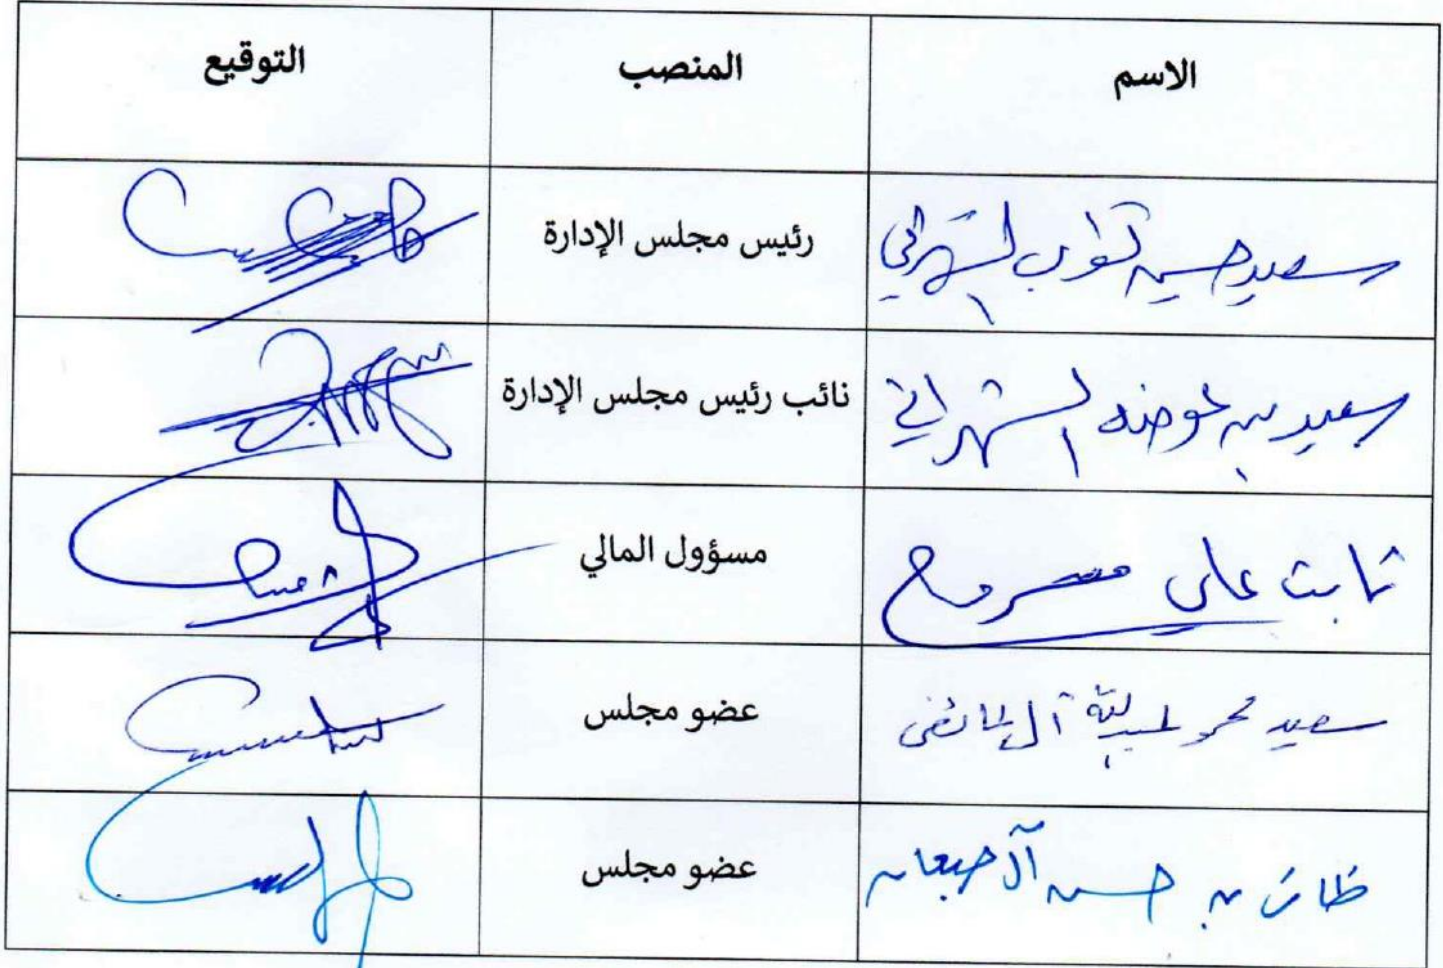 الاسم المنصب التوقيع
سعيد حسين الشهراني رئيس مجلس الإدارة
سعيد بن عوضه الشهراني نائب رئيس مجلس الإدارة
ثابت علي مسروح مسؤول المالي
سعيد محمد آل عضو مجلس
بن حسن آل عضو مجلس